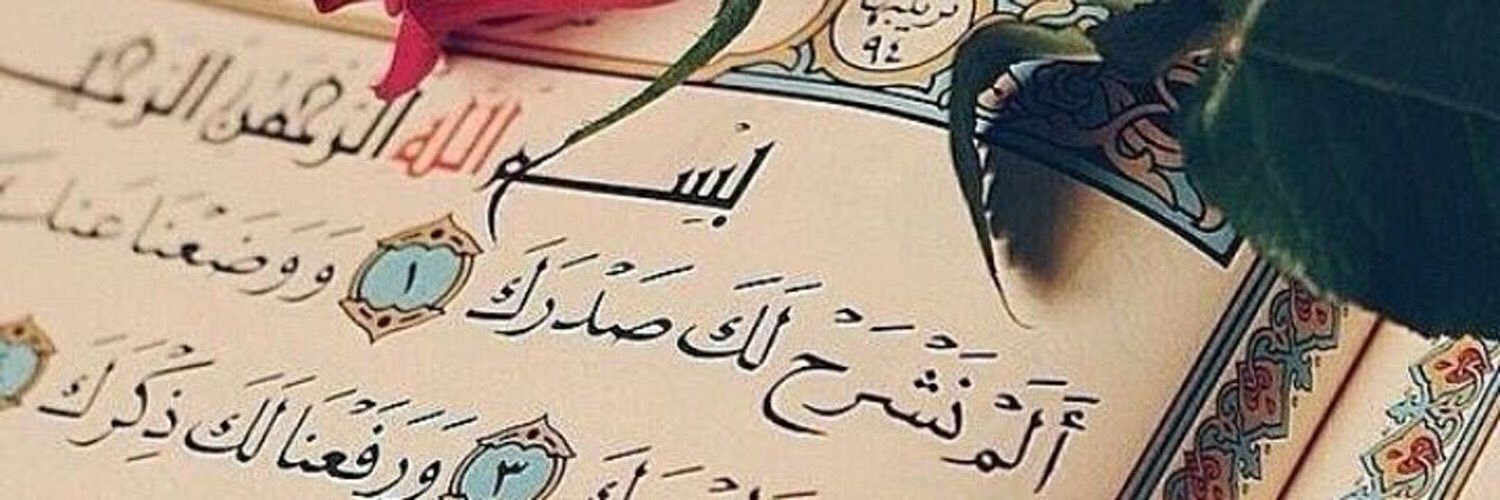 ترتيبها
٩٤
بِسْمِ اللَّهِ الرَّحْمَٰنِ الرَّحِيمِ
أَلَمْ نَشْرَحْ لَكَ صَدْرَكَ ١ وَوَضَعْنَا عَنكَ
وَرَفَعْنَا لَكَ ذِكْرَكَ ٣